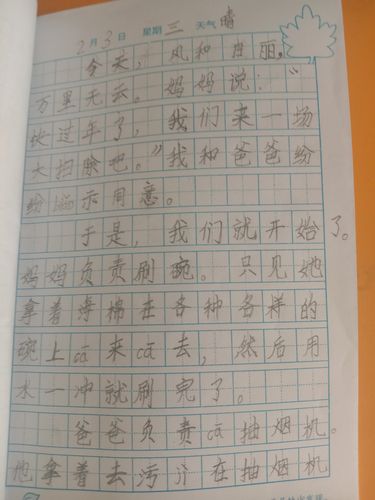 2月3日 星期三 天气晴
今天，风和日丽，
万里无云。妈妈说：“
快过年了，我们来一场
大扫除吧。”我和爸爸纷
纷表示同意。
于是，我们就开始了。
妈妈负责刷碗。只见她
拿着海棉在各种各样的
碗上cā来cā去，然后用
水一冲就刷完了。
爸爸负责cā抽烟机。
他拿着去污汁在抽烟机